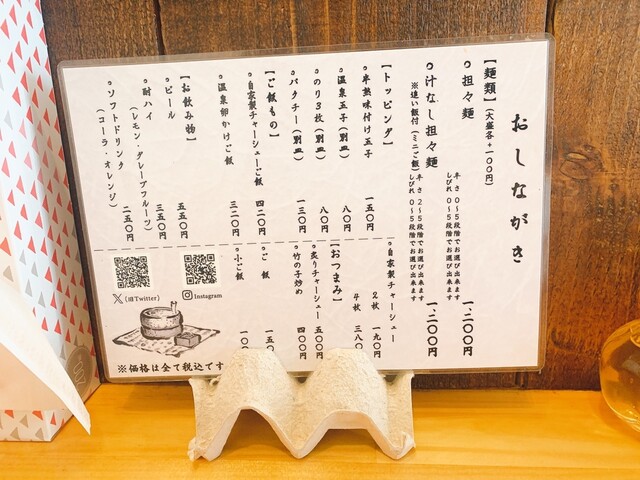 おしながき
【麺類】（大盛各＋一〇〇円）
担々麺 一、二〇〇円
辛さ 〇～五段階でお選び出来ます
しびれ 〇～五段階でお選び出来ます
汁なし担々麺 一、二〇〇円
※追い飯付（ミニご飯）
辛さ 二～五段階でお選び出来ます
しびれ 〇～五段階でお選び出来ます
【トッピング】
半熟味付け玉子 一五〇円
温泉玉子（別皿） 八〇円
のり３枚（別皿） 八〇円
パクチー（別皿） 一三〇円
自家製チャーシュー
２枚 一九〇円
４枚 三八〇
【ご飯もの】
自家製チャーシューご飯 四二〇円
温泉卵かけご飯 三二〇円
ご飯 一五〇
小ご飯 一〇〇
【おつまみ】
炙りチャーシュー 五〇〇円
竹の子炒め 四〇〇円
【お飲み物】
ビール 五五〇円
酎ハイ 三五〇円
（レモン・グレープフルーツ）
ソフトドリンク 二五〇円
（コーラ・オレンジ）
X（旧Twitter）
Instagram
※価格は全て税込です